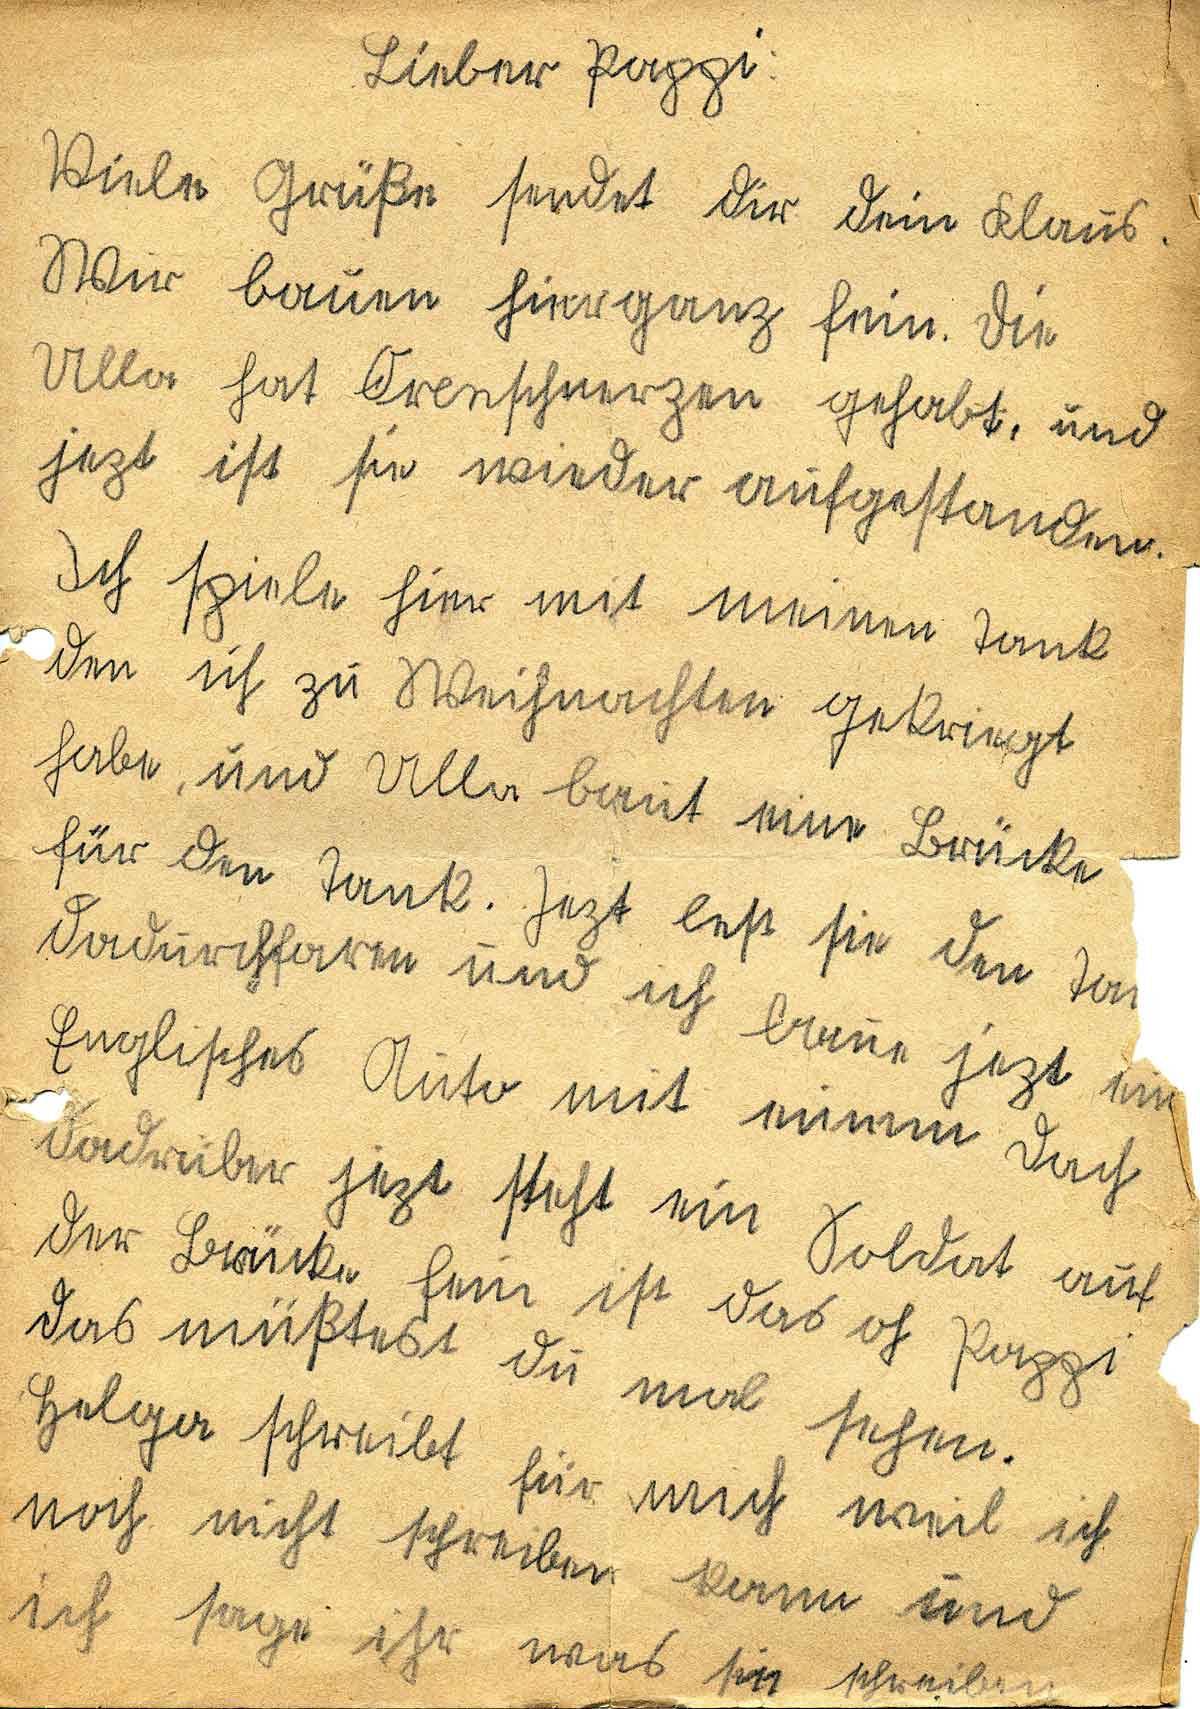 Lieber Pappi:
Viele Grüße sendet dir dein Klaus.
Wir bauen hier ganz fein. Die
Ulla hat Orenschmerzen gehabt, und
jezt ist sie wieder aufgestanden.
Ich spiele hier mit meinen Tank
den ich zu Weihnachten gekriegt
habe, und Ulla baut eine Brücke
für den Tank. Jezt lest sie den Tan
dadurchfaren und ich baue jezt ein
Englisches Auto mit einem Dach
dadrüber jezt steht ein Soldat auf
der Brücke fein ist das oh Pappi
das müßtest du mal sehen.
Helga schreibt für mich weil ich
noch nicht schreiben kann und
ich sage ihr was sie schreiben